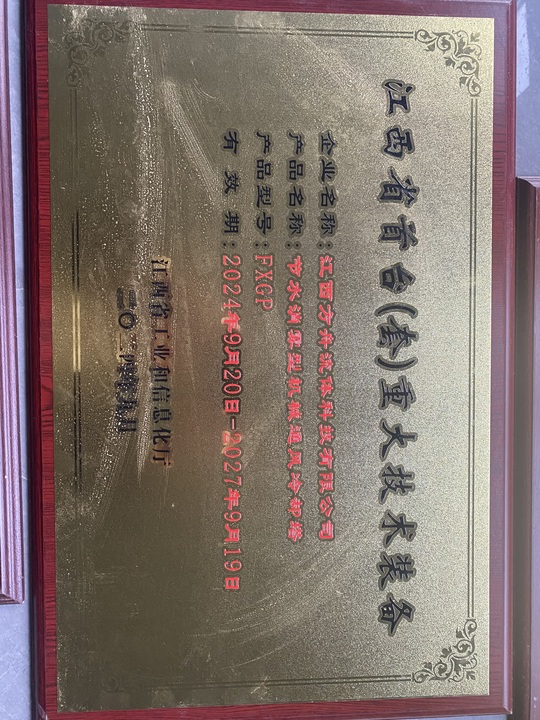 江西省首台(套)重大技术装备
企业名称：江西方舟流体科技有限公司
产品名称：节水消雾型机械通风冷却塔
产品型号：FXGP
有效期：2024年9月20日-2027年9月19日
江西省工业和信息化厅
二〇二四年九月